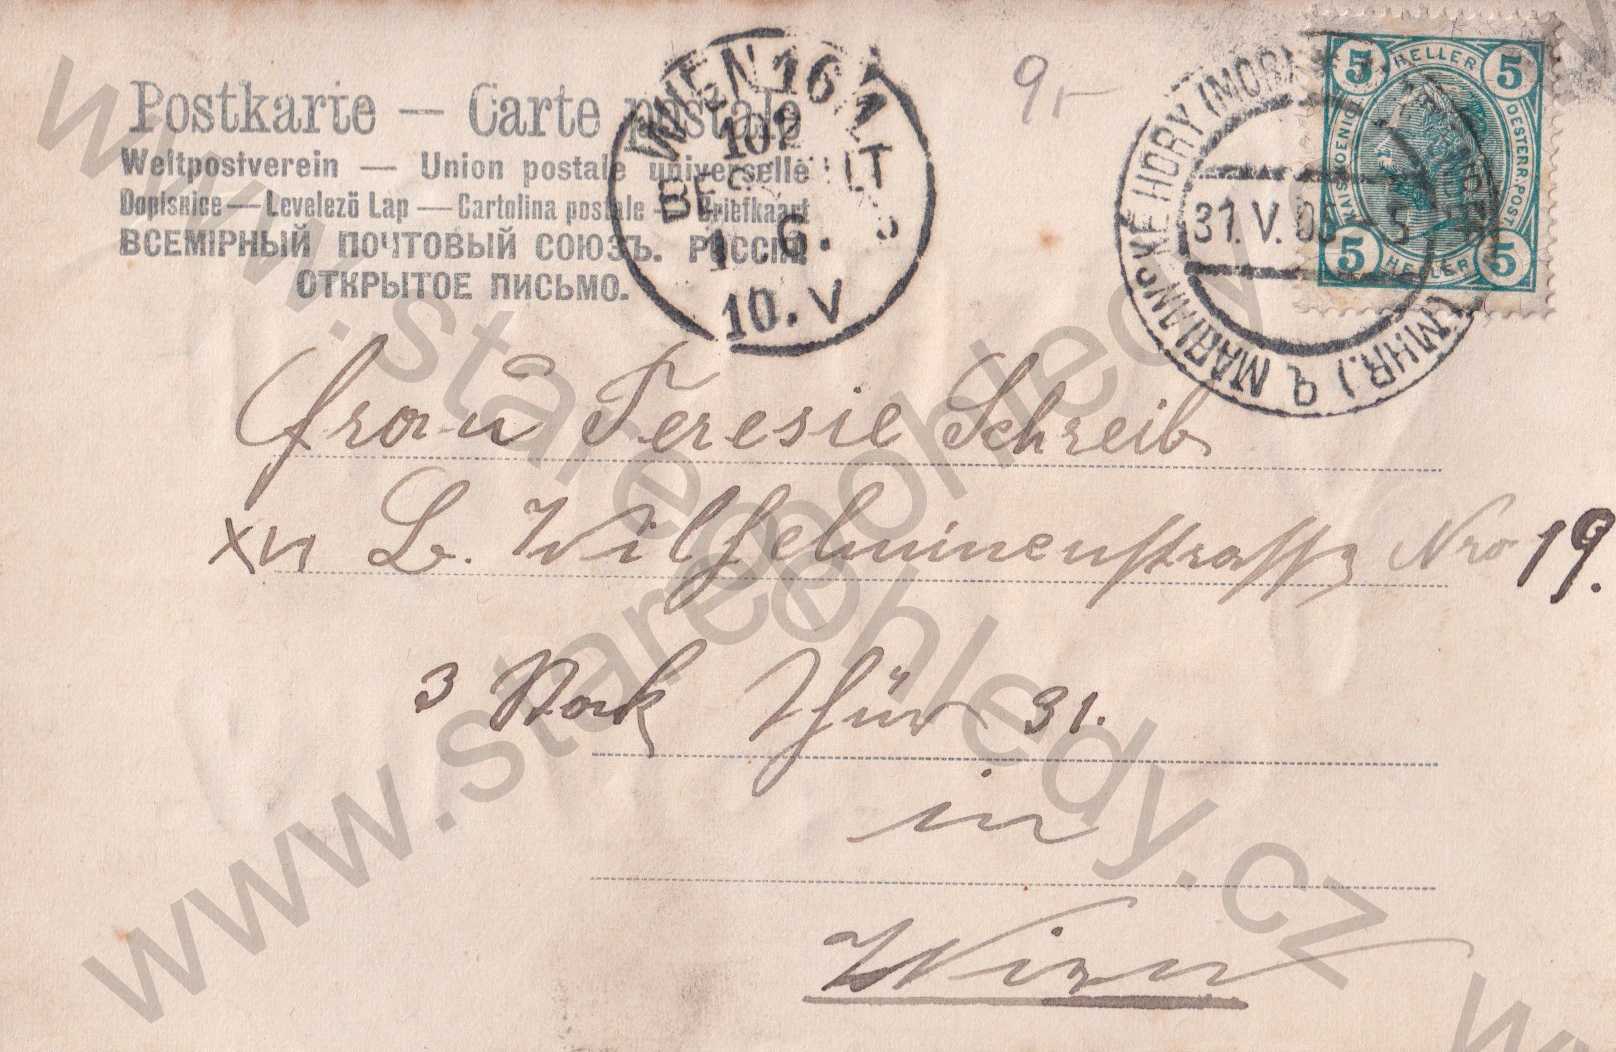 Postkarte — Carte postale
Weltpostverein — Union postale universelle
Dopisnice — Levelezö Lap — Cartolina postale — Briefkaart
ВСЕМIРНЫЙ ПОЧТОВЫЙ СОЮЗЪ. РОССIЯ
ОТКРЫТОЕ ПИСЬМО.
WIEN 16/1
102
BESTELLT
1. 6.
10. V
9
5 HELLER 5
KAIS. KOENIGL. OESTERR. POST
5 HELLER 5
MARIANSKÉ HORY (MOR
31. V. 05
MARI (MHR.)
Frau Teresie Schreib
XVI L. Wilhelminenstrasse Nro 19.
3 Stock Thür 31.
in
Wien
www.starepohledy.cz
www.starepohledy.cz